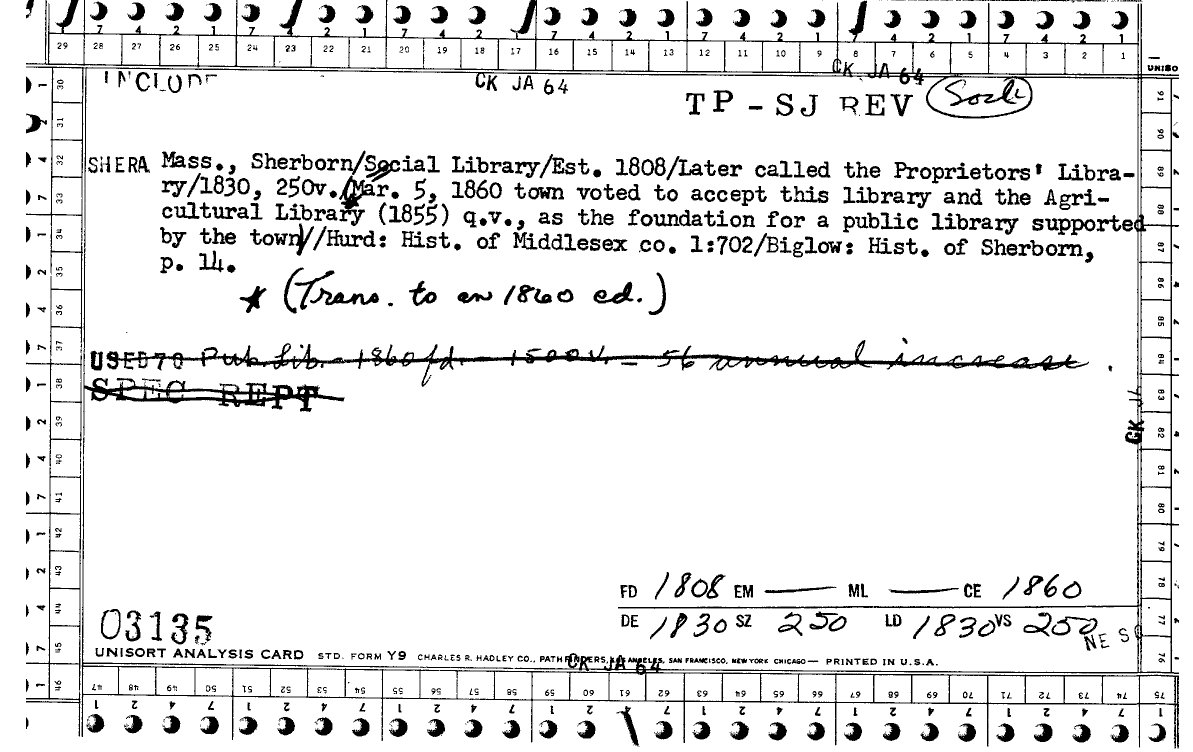 7 4 2 1 7 4 2 1 7 4 2 1 7 4 2 1 7 4 2 1 7 4 2 1 7 4 2 1
29 28 27 26 25 24 23 22 21 20 19 18 17 16 15 14 13 12 11 10 9 8 7 6 5 4 3 2 1
UNISO
INCLUDE CK JA 64 CK JA 64
TP - SJ REV Socl
SHERA Mass., Sherborn/Social Library/Est. 1808/Later called the Proprietors' Libra-
ry/1830, 250v./Mar. 5, 1860 town voted to accept this library and the Agri-
cultural Library (1855) q.v., as the foundation for a public library supported
by the town//Hurd: Hist. of Middlesex co. 1:702/Biglow: Hist. of Sherborn,
p. 14.
* (Trans. to an 1860 ed.)
USED 70 Pub. Lib. - 1860 fd. - 1500 v. - 56 annual increase.
SPEC REPT
CK
FD 1808 EM — ML — CE 1860
DE 1830 SZ 250 LD 1830 VS 250
NE SO
03135
UNISORT ANALYSIS CARD STD. FORM Y9 CHARLES R. HADLEY CO., PATHFINDERS, LOS ANGELES, SAN FRANCISCO, NEW YORK CHICAGO — PRINTED IN U.S.A.
CK JA 64
30 31 32 33 34 35 36 37 38 39 40 41 42 43 44 45 46
91 90 89 88 87 86 85 84 83 82 81 80 79 78 77 76
47 48 49 50 51 52 53 54 55 56 57 58 59 60 61 62 63 64 65 66 67 68 69 70 71 72 73 74 75